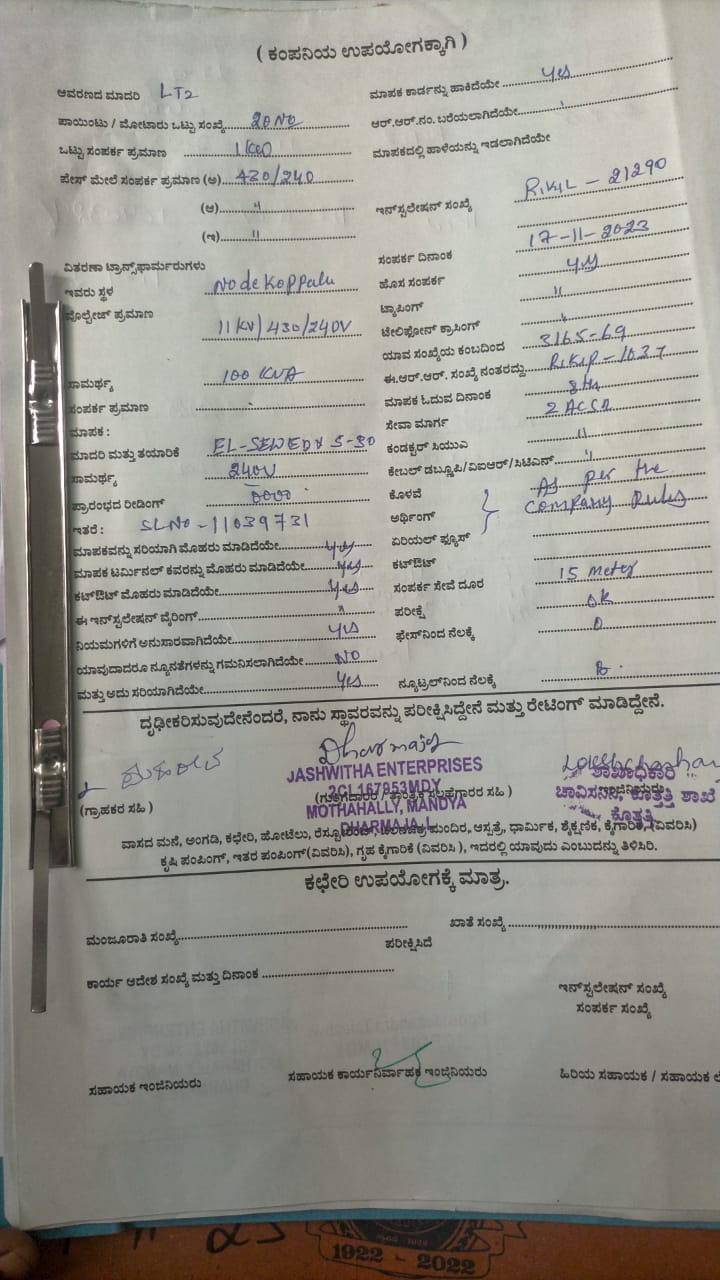 ( ಕಂಪನಿಯ ಉಪಯೋಗಕ್ಕಾಗಿ )
ಆವರಣದ ಮಾದರಿ LT2
ಪಾಯಿಂಟು / ಮೋಟಾರು ಒಟ್ಟು ಸಂಖ್ಯೆ 20 NO
ಒಟ್ಟು ಸಂಪರ್ಕ ಪ್ರಮಾಣ 1 KW
ಪೇಸ್ ಮೇಲೆ ಸಂಪರ್ಕ ಪ್ರಮಾಣ (ಅ) 430/240
(ಆ) "
(ಇ) "
ವಿತರಣಾ ಟ್ರಾನ್ಸ್‌ಫಾರ್ಮರುಗಳು
ಇವರು ಸ್ಥಳ Node Koppalu
ವೋಲ್ಟೇಜ್ ಪ್ರಮಾಣ 11 KV/430/240V
ಸಾಮರ್ಥ್ಯ 100 KVA
ಸಂಪರ್ಕ ಪ್ರಮಾಣ
ಮಾಪಕ :
ಮಾದರಿ ಮತ್ತು ತಯಾರಿಕೆ EL-SEWEDY 5-30
ಸಾಮರ್ಥ್ಯ 240V
ಪ್ರಾರಂಭದ ರೀಡಿಂಗ್ 0000
ಇತರೆ : SLNO-11039731
ಮಾಪಕವನ್ನು ಸರಿಯಾಗಿ ಮೊಹರು ಮಾಡಿದೆಯೇ yes
ಮಾಪಕ ಟರ್ಮಿನಲ್ ಕವರನ್ನು ಮೊಹರು ಮಾಡಿದೆಯೇ yes
ಕಟ್‌ಔಟ್ ಮೊಹರು ಮಾಡಿದೆಯೇ yes
ಈ ಇನ್‌ಸ್ಪಲೇಷನ್ ವೈರಿಂಗ್ "
ನಿಯಮಗಳಿಗೆ ಅನುಸಾರವಾಗಿದೆಯೇ yes
ಯಾವುದಾದರೂ ನ್ಯೂನತೆಗಳನ್ನು ಗಮನಿಸಲಾಗಿದೆಯೇ NO
ಮತ್ತು ಅದು ಸರಿಯಾಗಿದೆಯೇ Yes
ಮಾಪಕ ಕಾರ್ಡನ್ನು ಹಾಕಿದೆಯೇ yes
ಆರ್.ಆರ್.ನಂ. ಬರೆಯಲಾಗಿದೆಯೇ
ಮಾಪಕದಲ್ಲಿ ಹಾಳೆಯನ್ನು ಇಡಲಾಗಿದೆಯೇ
ಇನ್‌ಸ್ಪಲೇಷನ್ ಸಂಖ್ಯೆ RIKIL - 21290
ಸಂಪರ್ಕ ದಿನಾಂಕ 17-11-2023
ಹೊಸ ಸಂಪರ್ಕ yes
ಟ್ಯಾಪಿಂಗ್ "
ಟೆಲಿಫೋನ್ ಕ್ರಾಸಿಂಗ್
ಯಾವ ಸಂಖ್ಯೆಯ ಕಂಬದಿಂದ 3165-69
ಈ.ಆರ್.ಆರ್. ಸಂಖ್ಯೆ ನಂತರದ್ದು RIKIP-1037
ಮಾಪಕ ಓದುವ ದಿನಾಂಕ 8th
ಸೇವಾ ಮಾರ್ಗ 2 ACSR
ಕಂಡಕ್ಟರ್ ಸಿಯುಎ "
ಕೇಬಲ್ ಡಬ್ಲ್ಯೂಪಿ/ವಿಐಆರ್/ಸಿಟಿಎಸ್ "
ಕೊಳವೆ As per the
ಅರ್ಥಿಂಗ್ Company Rules
ಏರಿಯಲ್ ಫ್ಯೂಸ್
ಕಟ್‌ಔಟ್
ಸಂಪರ್ಕ ಸೇವೆ ದೂರ 15 meter
ಪರೀಕ್ಷೆ OK
ಫೇಸ್‌ನಿಂದ ನೆಲಕ್ಕೆ 0
ನ್ಯೂಟ್ರಲ್‌ನಿಂದ ನೆಲಕ್ಕೆ
ದೃಢೀಕರಿಸುವುದೇನೆಂದರೆ, ನಾನು ಸ್ಥಾವರವನ್ನು ಪರೀಕ್ಷಿಸಿದ್ದೇನೆ ಮತ್ತು ರೇಟಿಂಗ್ ಮಾಡಿದ್ದೇನೆ.
Dharmaja
JASHWITHA ENTERPRISES
2CL167953MDY
MOTHAHALLY, MANDYA
DHARMAJA.L
(ಗ್ರಾಹಕರ ಸಹಿ )
(ಗುತ್ತಿಗೆದಾರರ / ತಾಂತ್ರಿಕ ಸಲಹೆಗಾರರ ಸಹಿ )
ಶಾಖಾಧಿಕಾರಿ
ಇಂಜಿನಿಯರು
ಚಾವಿಸನಿನಿ, ಕೊತ್ತತ್ತಿ ಶಾಖೆ
ಕೊತ್ತತ್ತಿ
ವಾಸದ ಮನೆ, ಅಂಗಡಿ, ಕಛೇರಿ, ಹೋಟೆಲು, ರೆಸ್ಟೋರೆಂಟ್, ಚಲನಚಿತ್ರ ಮಂದಿರ, ಆಸ್ಪತ್ರೆ, ಧಾರ್ಮಿಕ, ಶೈಕ್ಷಣಿಕ, ಕೈಗಾರಿಕೆ, (ವಿವರಿಸಿ)
ಕೃಷಿ ಪಂಪಿಂಗ್, ಇತರ ಪಂಪಿಂಗ್(ವಿವರಿಸಿ), ಗೃಹ ಕೈಗಾರಿಕೆ (ವಿವರಿಸಿ ), ಇದರಲ್ಲಿ ಯಾವುದು ಎಂಬುದನ್ನು ತಿಳಿಸಿರಿ.
ಕಛೇರಿ ಉಪಯೋಗಕ್ಕೆ ಮಾತ್ರ.
ಮಂಜೂರಾತಿ ಸಂಖ್ಯೆ
ಖಾತೆ ಸಂಖ್ಯೆ
ಪರೀಕ್ಷಿಸಿದೆ
ಕಾರ್ಯ ಆದೇಶ ಸಂಖ್ಯೆ ಮತ್ತು ದಿನಾಂಕ
ಇನ್‌ಸ್ಪಲೇಷನ್ ಸಂಖ್ಯೆ
ಸಂಪರ್ಕ ಸಂಖ್ಯೆ
ಸಹಾಯಕ ಇಂಜಿನಿಯರು
ಸಹಾಯಕ ಕಾರ್ಯನಿರ್ವಾಹಕ ಇಂಜಿನಿಯರು
ಹಿರಿಯ ಸಹಾಯಕ / ಸಹಾಯಕ ಲೆ
1922 - 2022